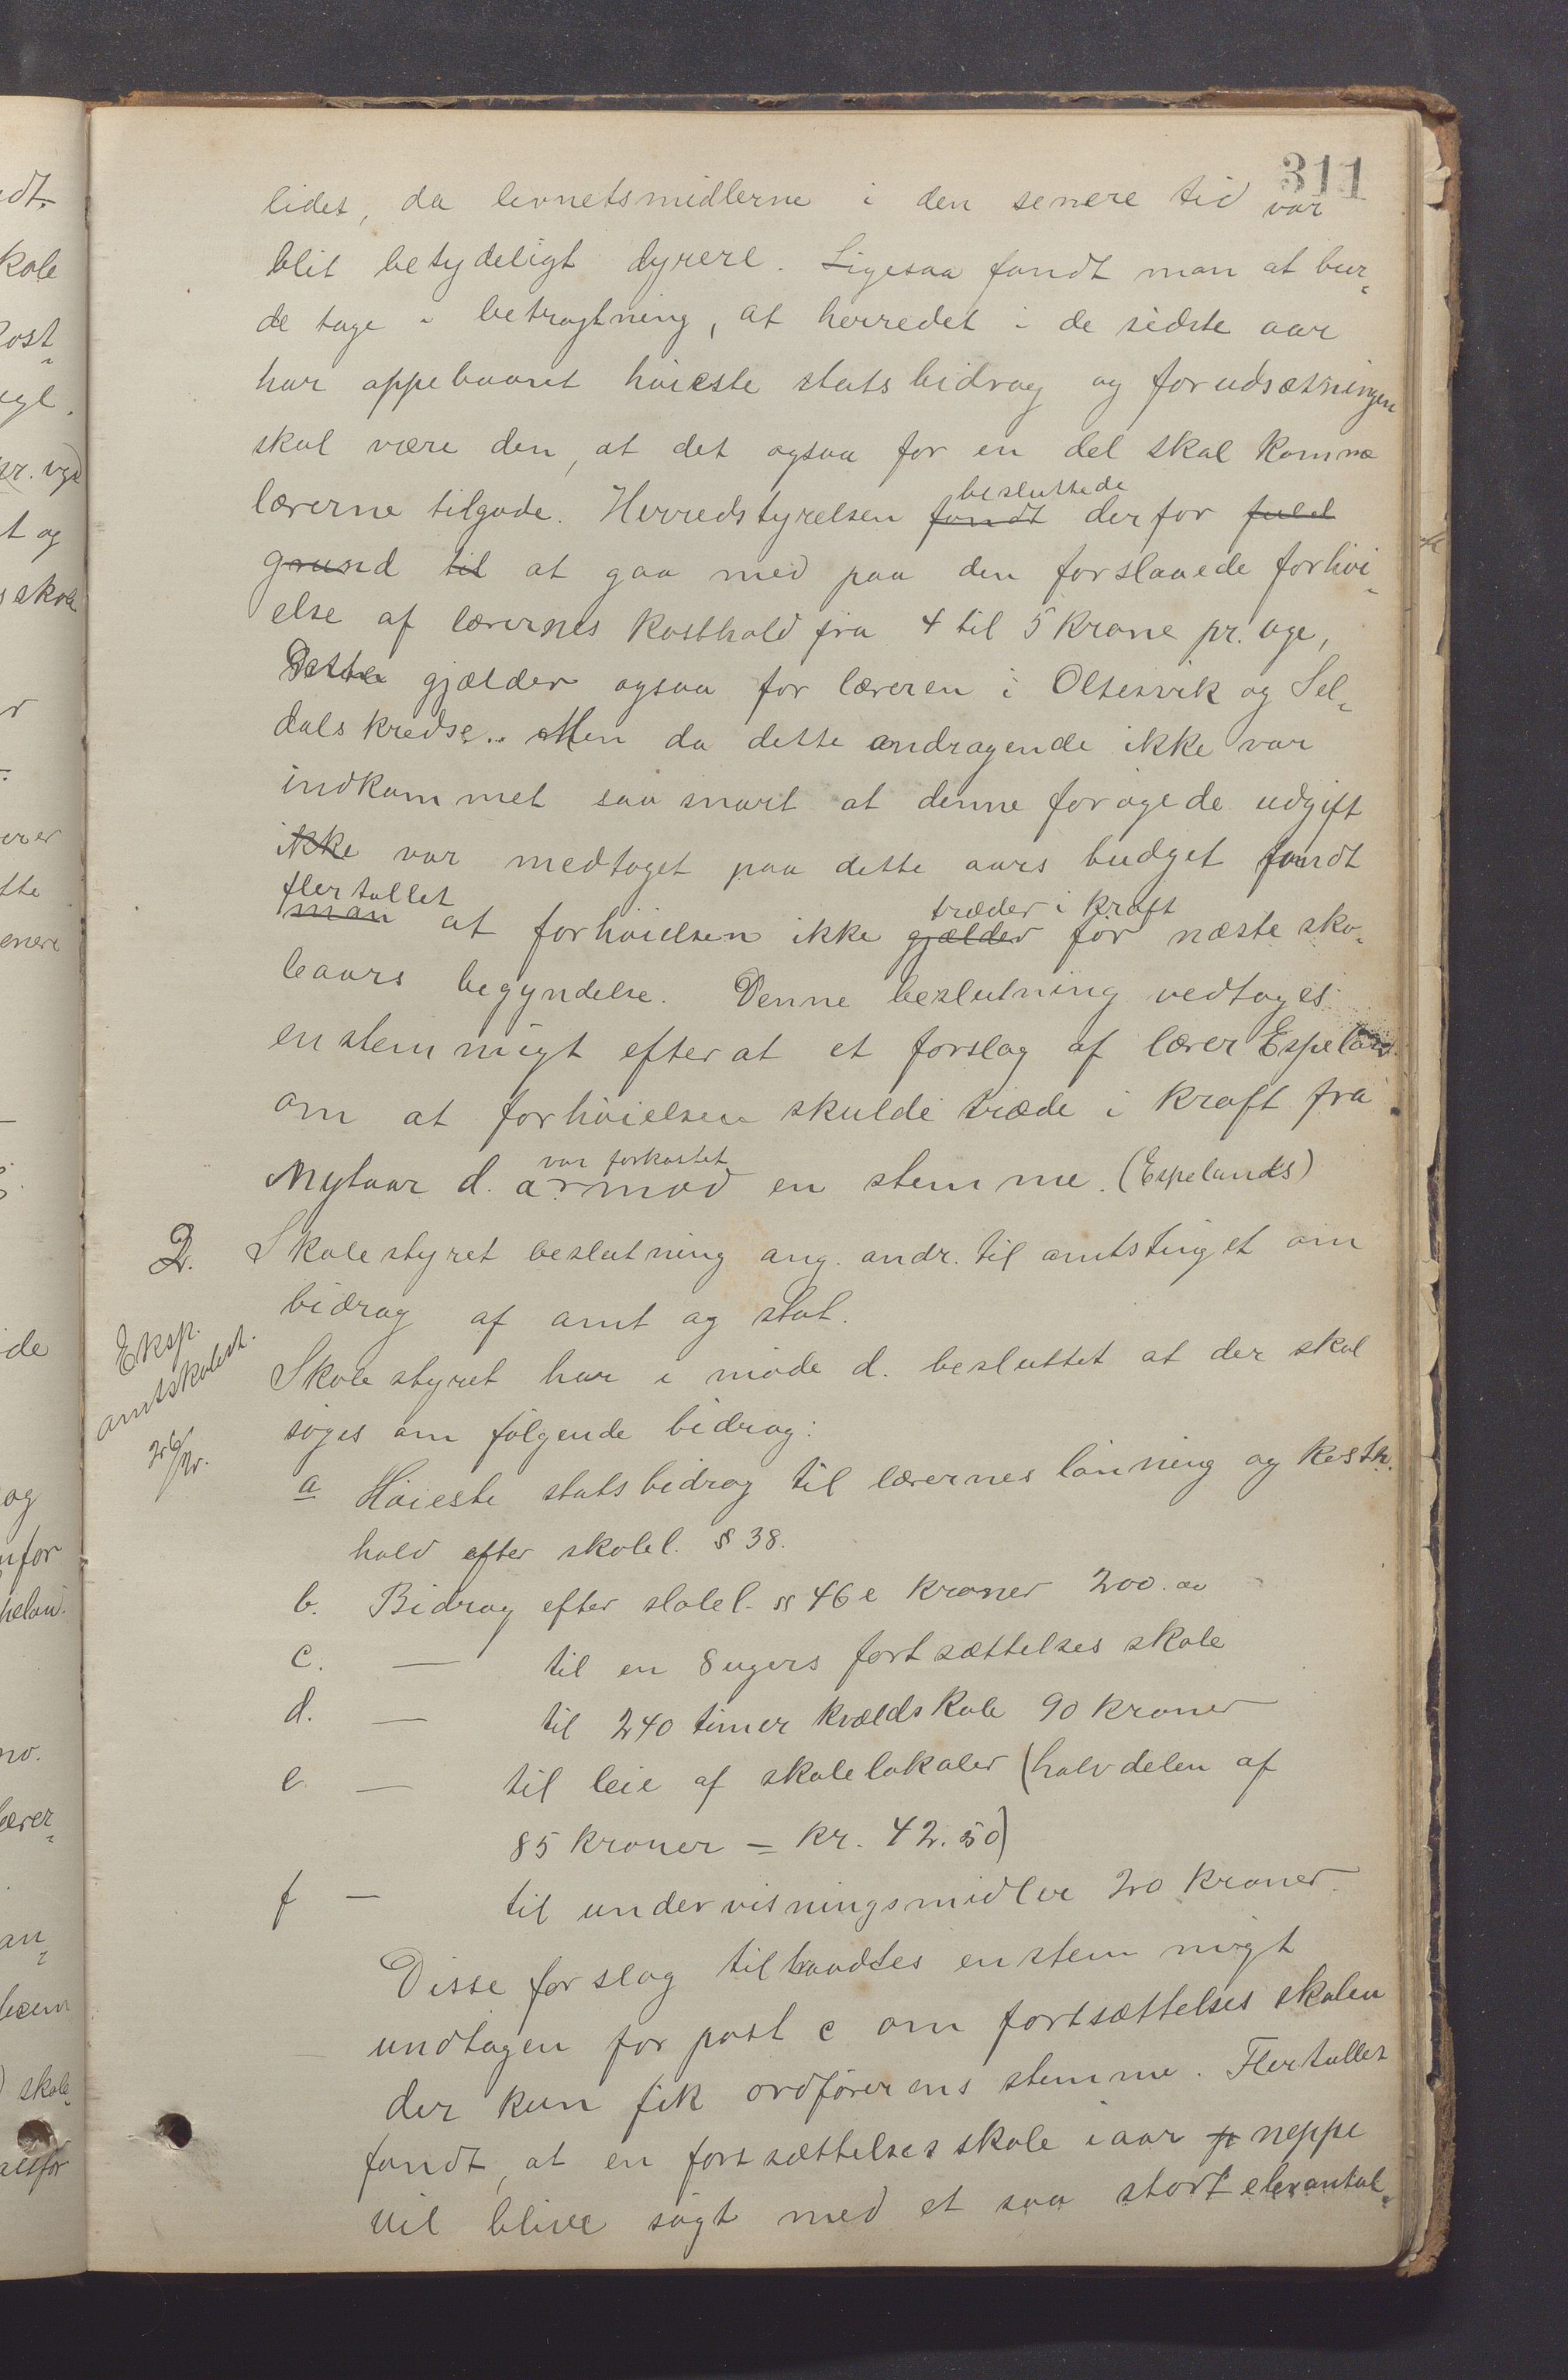 311
lidet, da levnetsmidlerne i den senere tid var
blit betydeligt dyrere. Ligesaa fandt man at bur-
de tage i betragtning, at herredet i de sidste aar
har oppebaaret høieste statsbidrag og forudsætningen
skal være den, at det ogsaa for en del skal komme
lærerne tilgode. Herredstyrelsen fandt besluttede derfor fuld
grund til at gaa med paa den forslaaede forhøi-
else af lærernes kosthold fra 4 til 5 krone pr. uge,
Dette gjælder ogsaa for læreren i Oltesvik og Sel-
dals kredse. Men da dette andragende ikke var
indkommet saa snart at denne forøgede udgift
ikke var medtaget paa dette aars budget fandt
man flertallet at forhøielsen ikke gjælder træder i kraft før næste sko-
leaars begyndelse. Denne beslutning vedtoges
enstemmigt efter at et forslag af lærer Espeland
om at forhøielsen skulde træde i kraft fra
Nytaar d. a. var forkastet mod en stemme. (Espelands)
2. Skolestyret beslutning ang. andr. til amtstinget om
bidrag af amt og stat.
Eksp.
amtskolest.
26/2.
Skolestyret har i møde d. besluttet at der skal
søges om følgende bidrag:
a Høieste statsbidrag til lærernes lønning og kost-
hold efter skolel. § 38.
b. Bidrag efter skolel. §§ 46 e kroner 200.00
c. — til en 8 ugers fortsættelses skole
d. — til 240 timer kveldskole 90 kroner
e — til leie af skolelokaler (halvdelen af
85 kroner = kr. 42.50)
f — til undervisningsmidler 20 kroner.
Disse forslag tiltraadtes enstemmigt
undtagen for post c om fortsættelses skolen
der kun fik ordførerens stemme. Flertallet
fandt, at en fortsættelses skole iaar neppe
vil blive søgt med et saa stort elevantal-